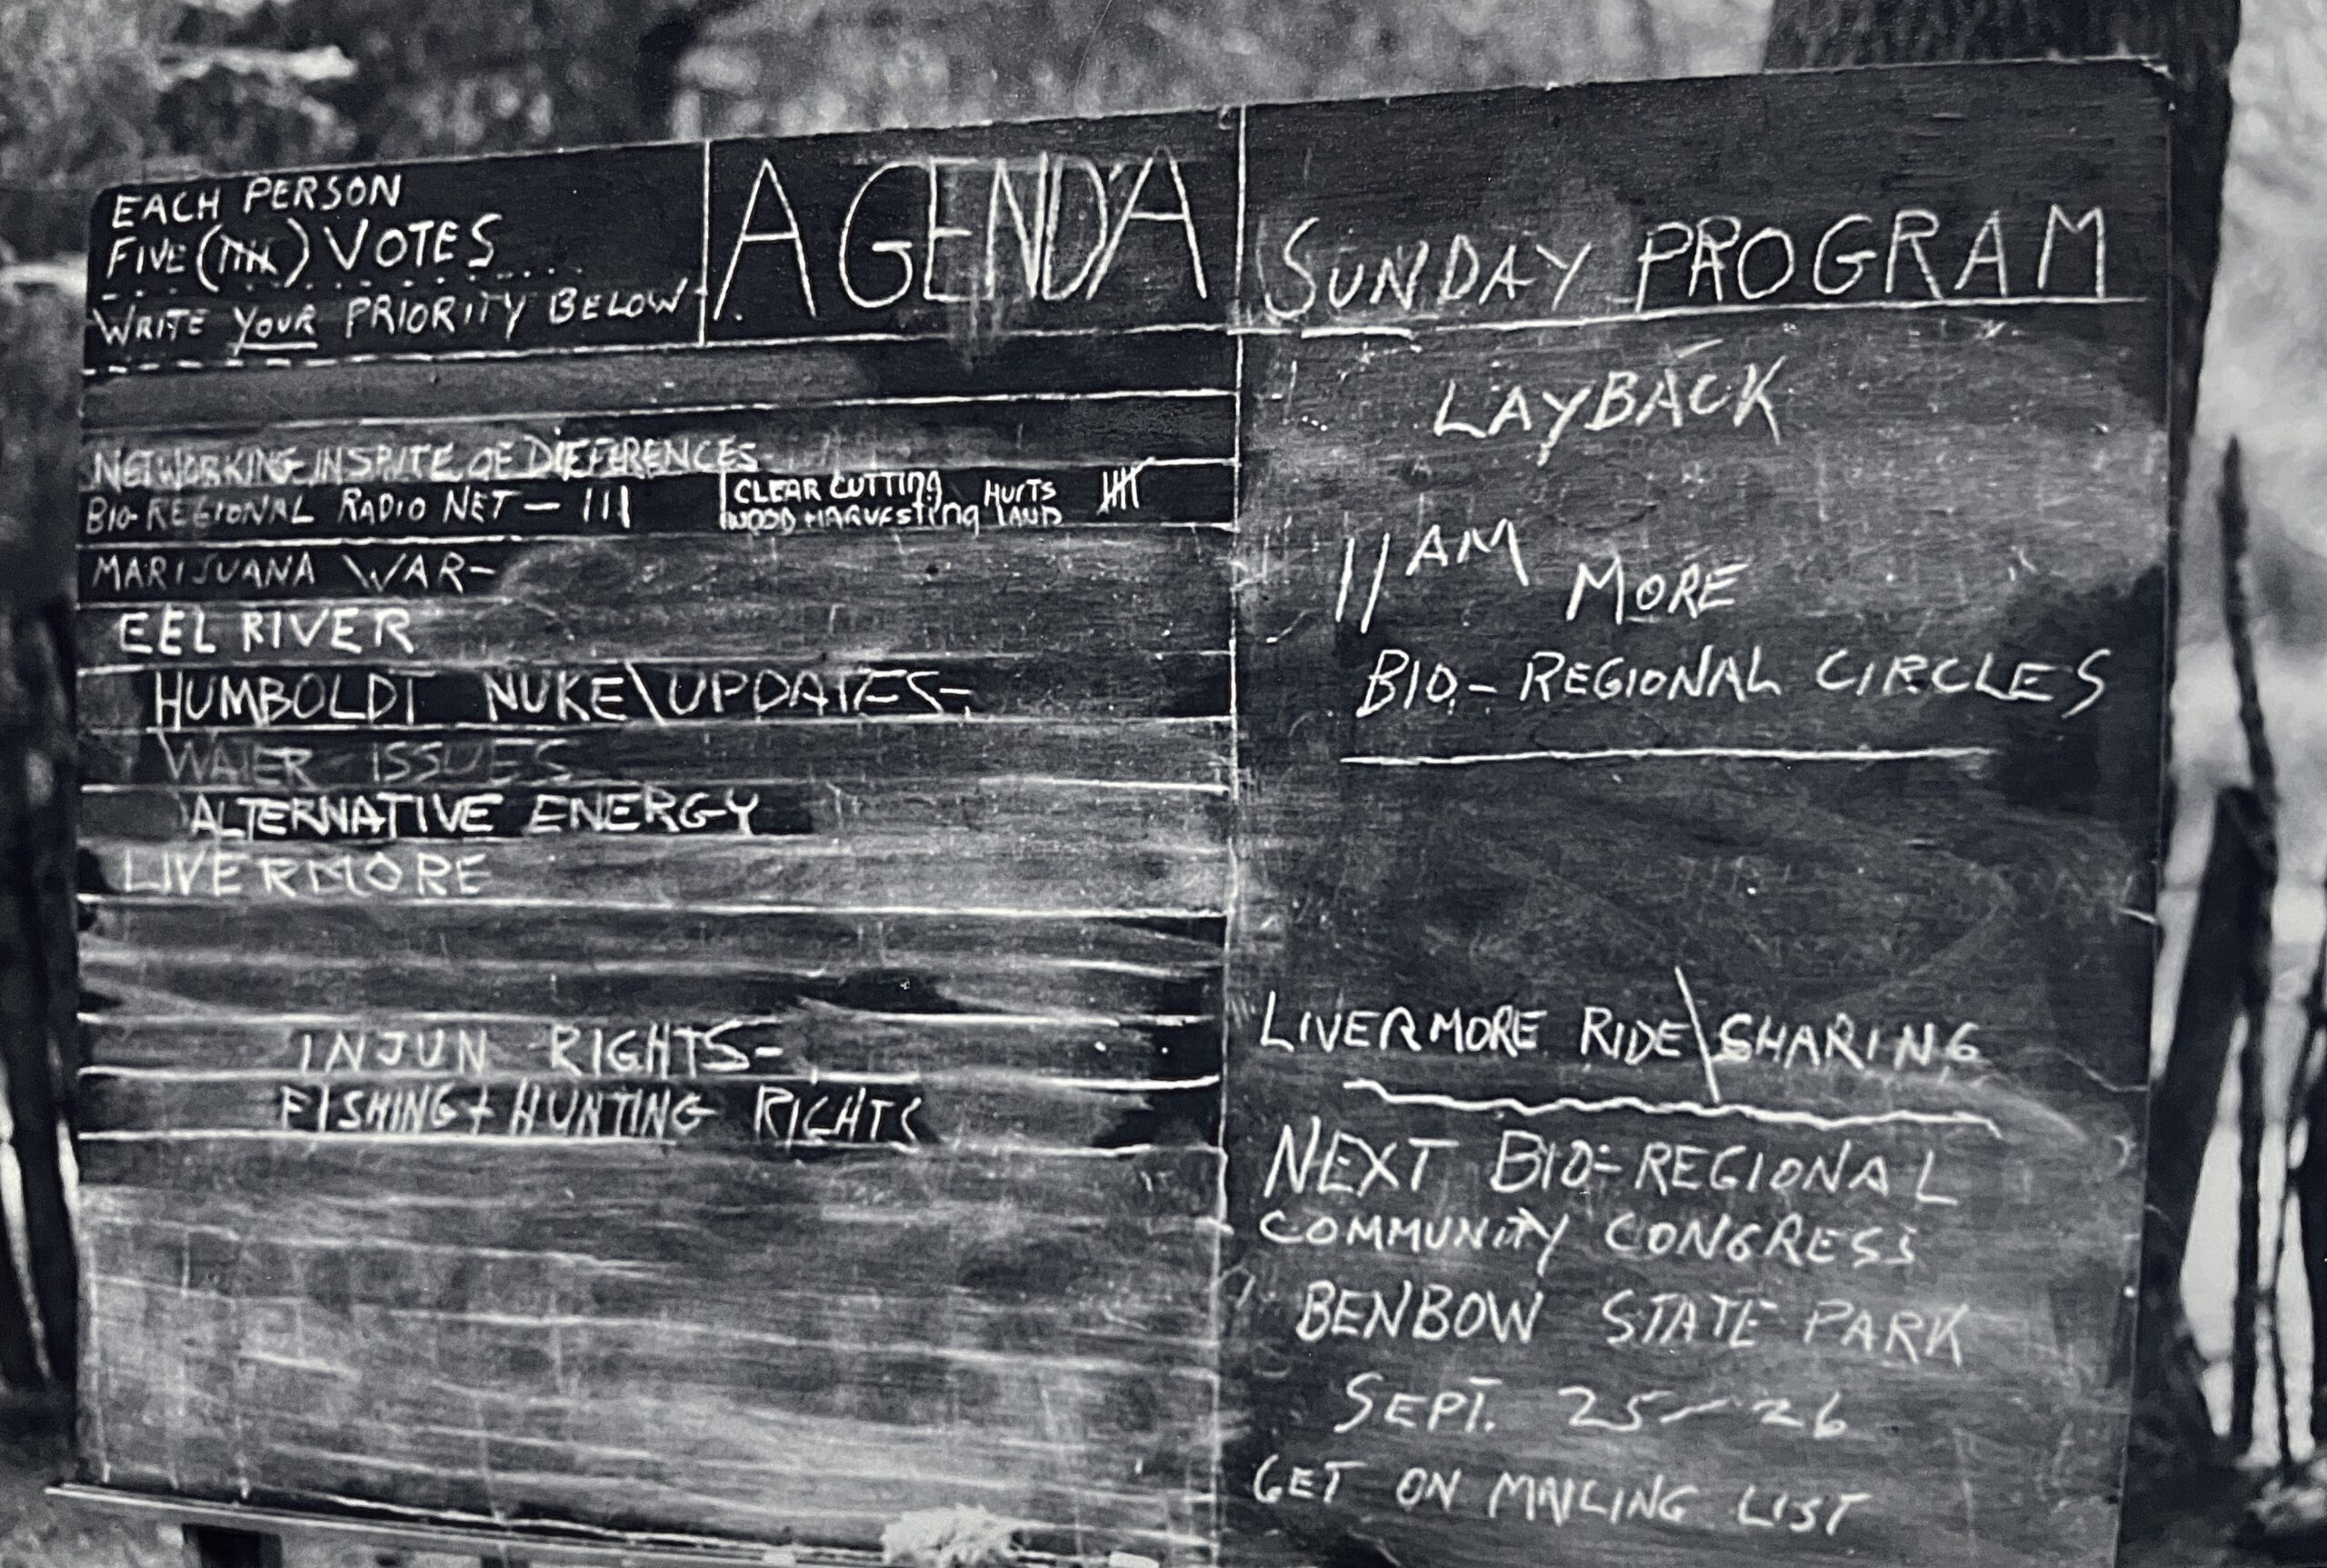 EACH PERSON
FIVE (IIII) VOTES
WRITE YOUR PRIORITY BELOW
AGENDA
NETWORKING INSPITE OF DIFFERENCES
BIO-REGIONAL RADIO NET – III
CLEAR CUTTING HURTS
WOOD HARVESTING LAND
MARIJUANA WAR-
EEL RIVER
HUMBOLDT NUKE\UPDATES-
WATER ISSUES
ALTERNATIVE ENERGY
LIVERMORE
INJUN RIGHTS-
FISHING + HUNTING RIGHTS
SUNDAY PROGRAM
LAYBACK
11 AM MORE
BIO-REGIONAL CIRCLES
LIVERMORE RIDE\SHARING
NEXT BIO-REGIONAL
COMMUNITY CONGRESS
BENBOW STATE PARK
SEPT. 25-26
GET ON MAILING LIST